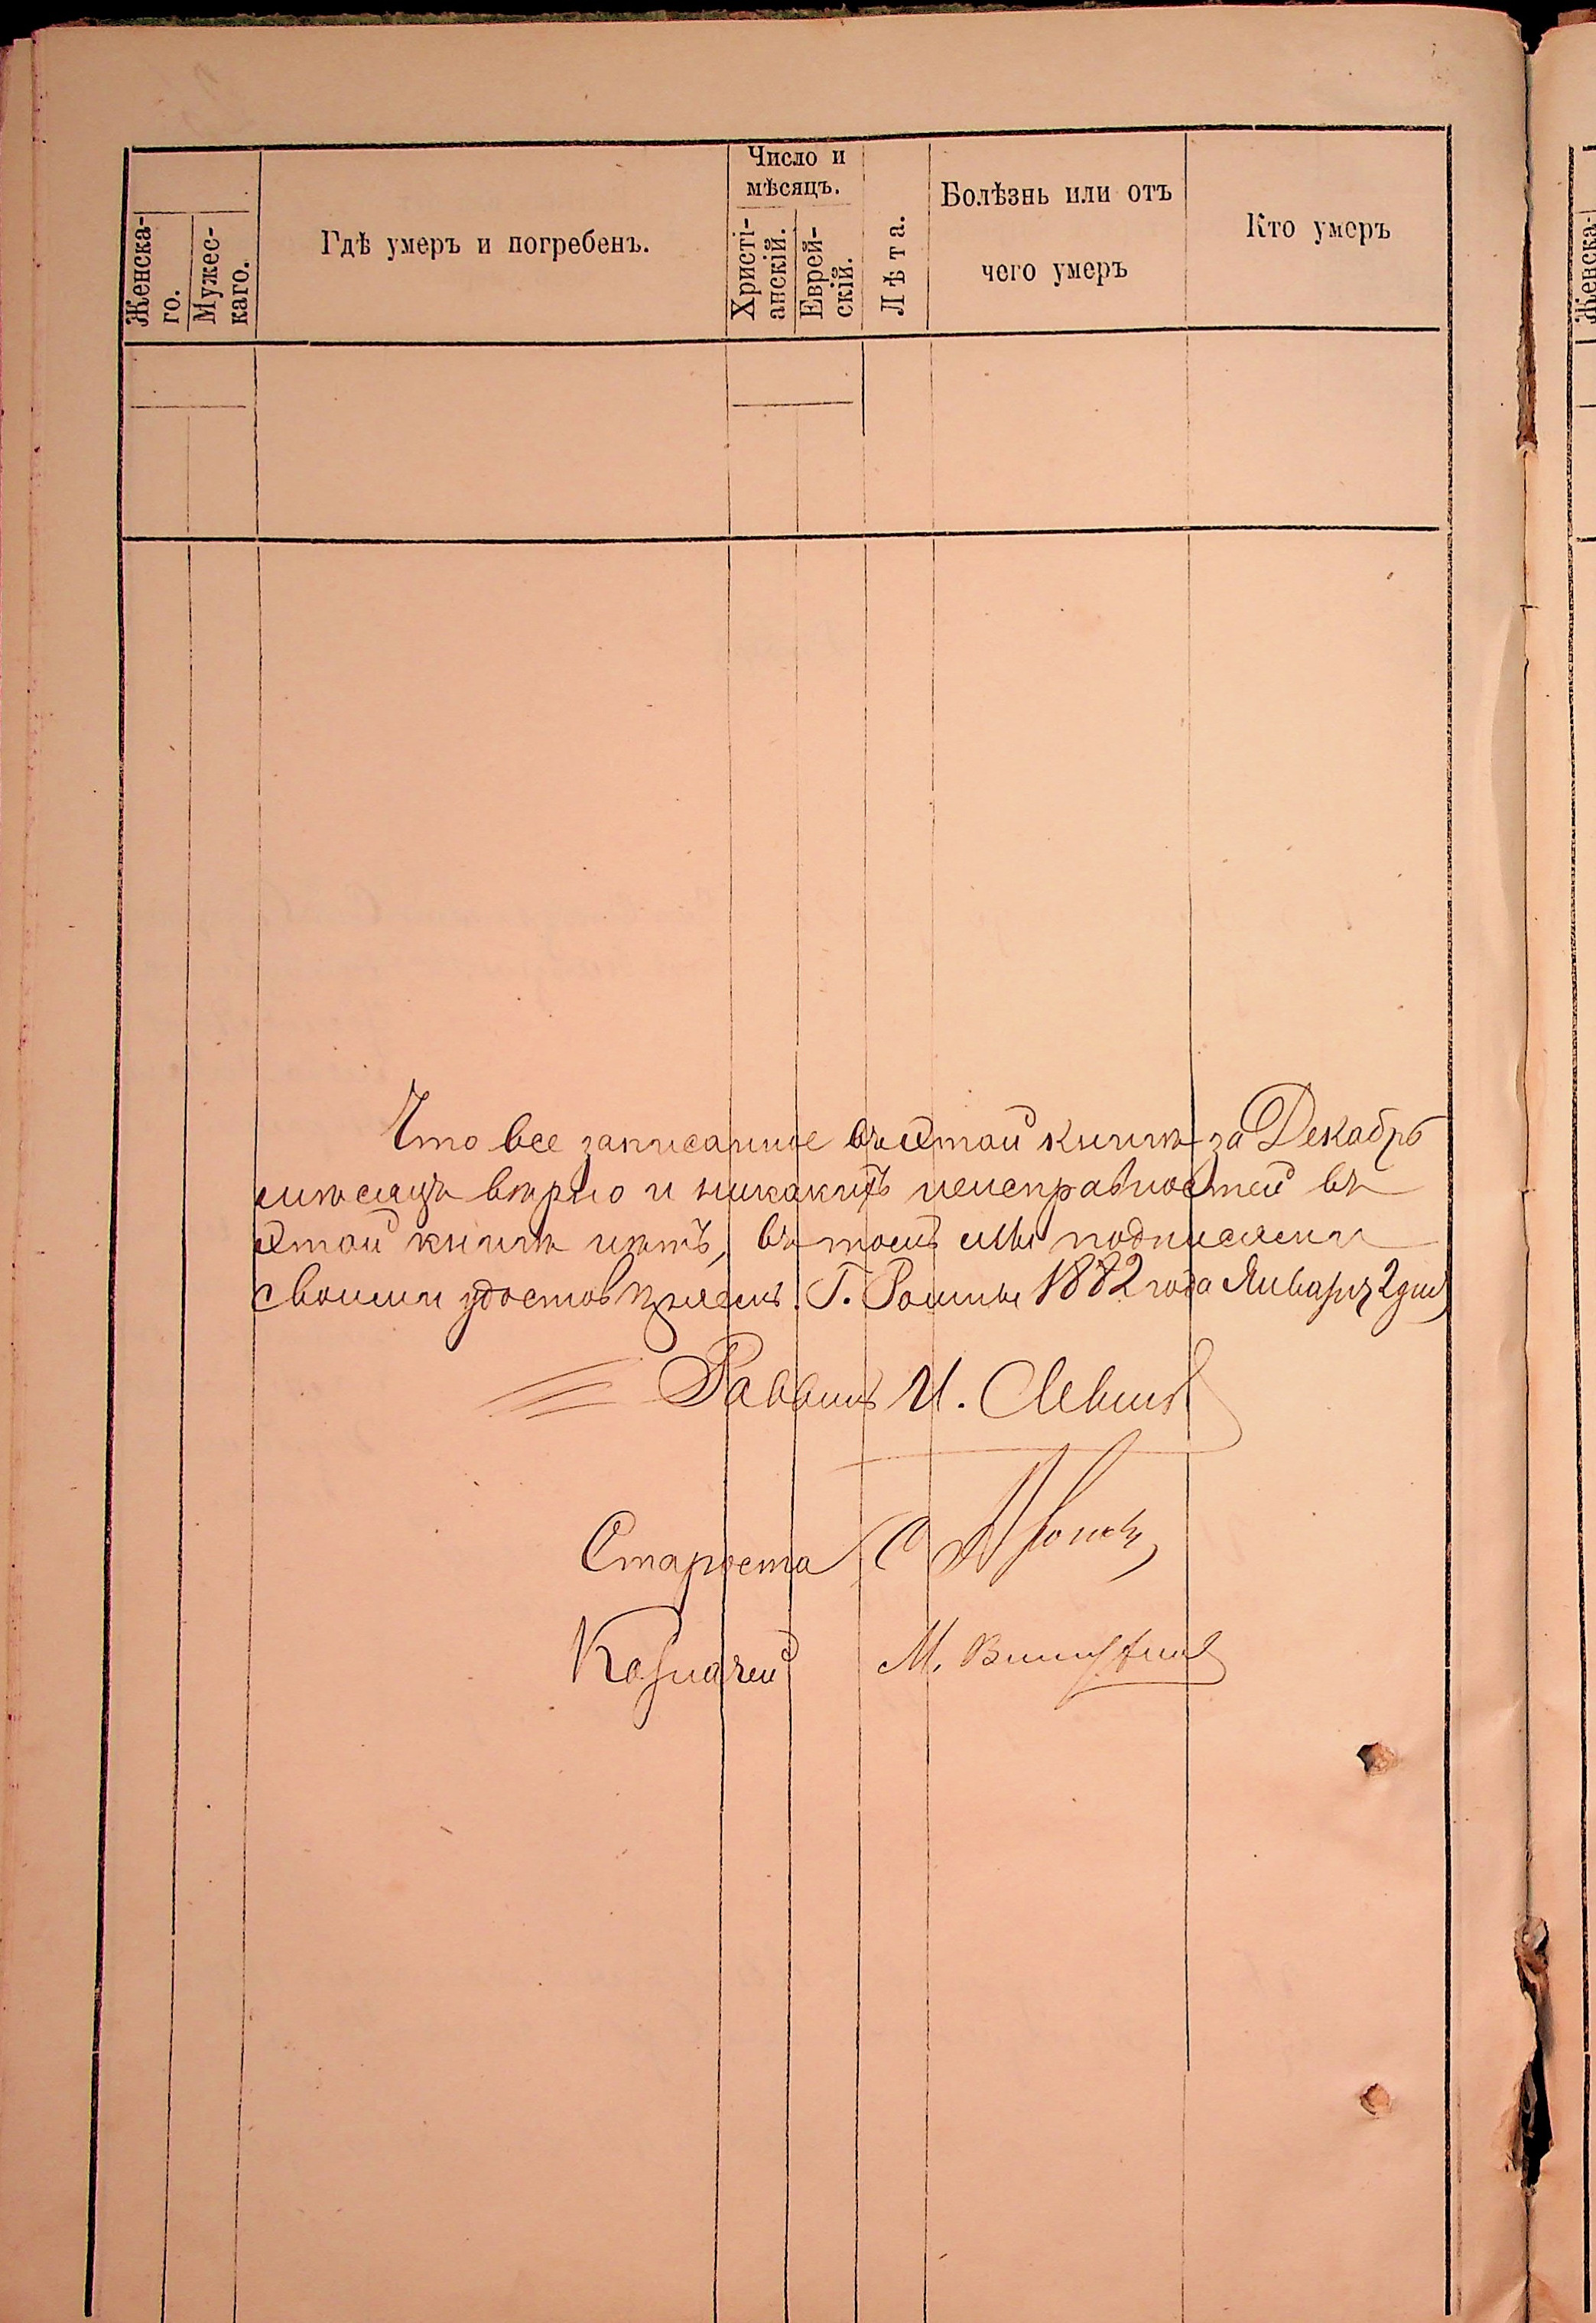 Женска-
го.
Мужес-
каго.
Гдѣ умеръ и погребенъ.
Число и
мѣсяцъ.
Христі-
анскій.
Еврей-
скій.
Лѣта.
Болѣзнь или отъ
чего умеръ
Кто умеръ
Женска-
Что все записанное въ етой книгѣ за Декабрь
мѣсяцъ вѣрно и никакихъ неисправностей въ
етой книгѣ нѣтъ, въ томъ мы подписями
своими удостовѣряемъ. Г. Ромны 1882 года Января 2 дня
Раввинъ И. Левинъ
Староста
Казначей М.